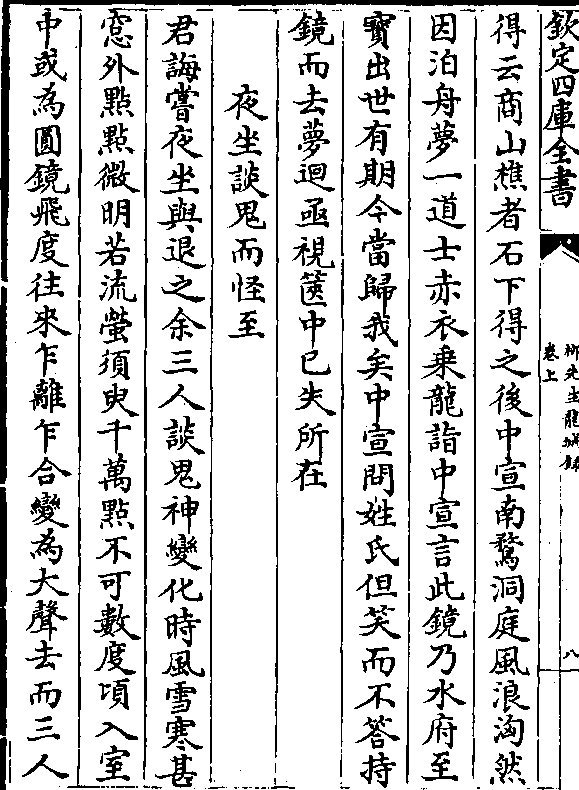 欽定四庫全書
柳先生龍城録
卷上
八
得云商山樵者石下得之後中宣南騖洞庭風浪洶然
因泊舟夢一道士赤衣乗龍詣中宣言此鏡乃水府至
寶出世有期今當歸我矣中宣問姓氏但笑而不答持
鏡而去夢迴亟視篋中已失所在
夜坐談鬼而怪至
君誨嘗夜坐與退之余三人談鬼神變化時風雪寒甚
窓外點點微明若流螢須臾千萬點不可數度頃入室
中或為圓鏡飛度往來乍離乍合變為大聲去而三人